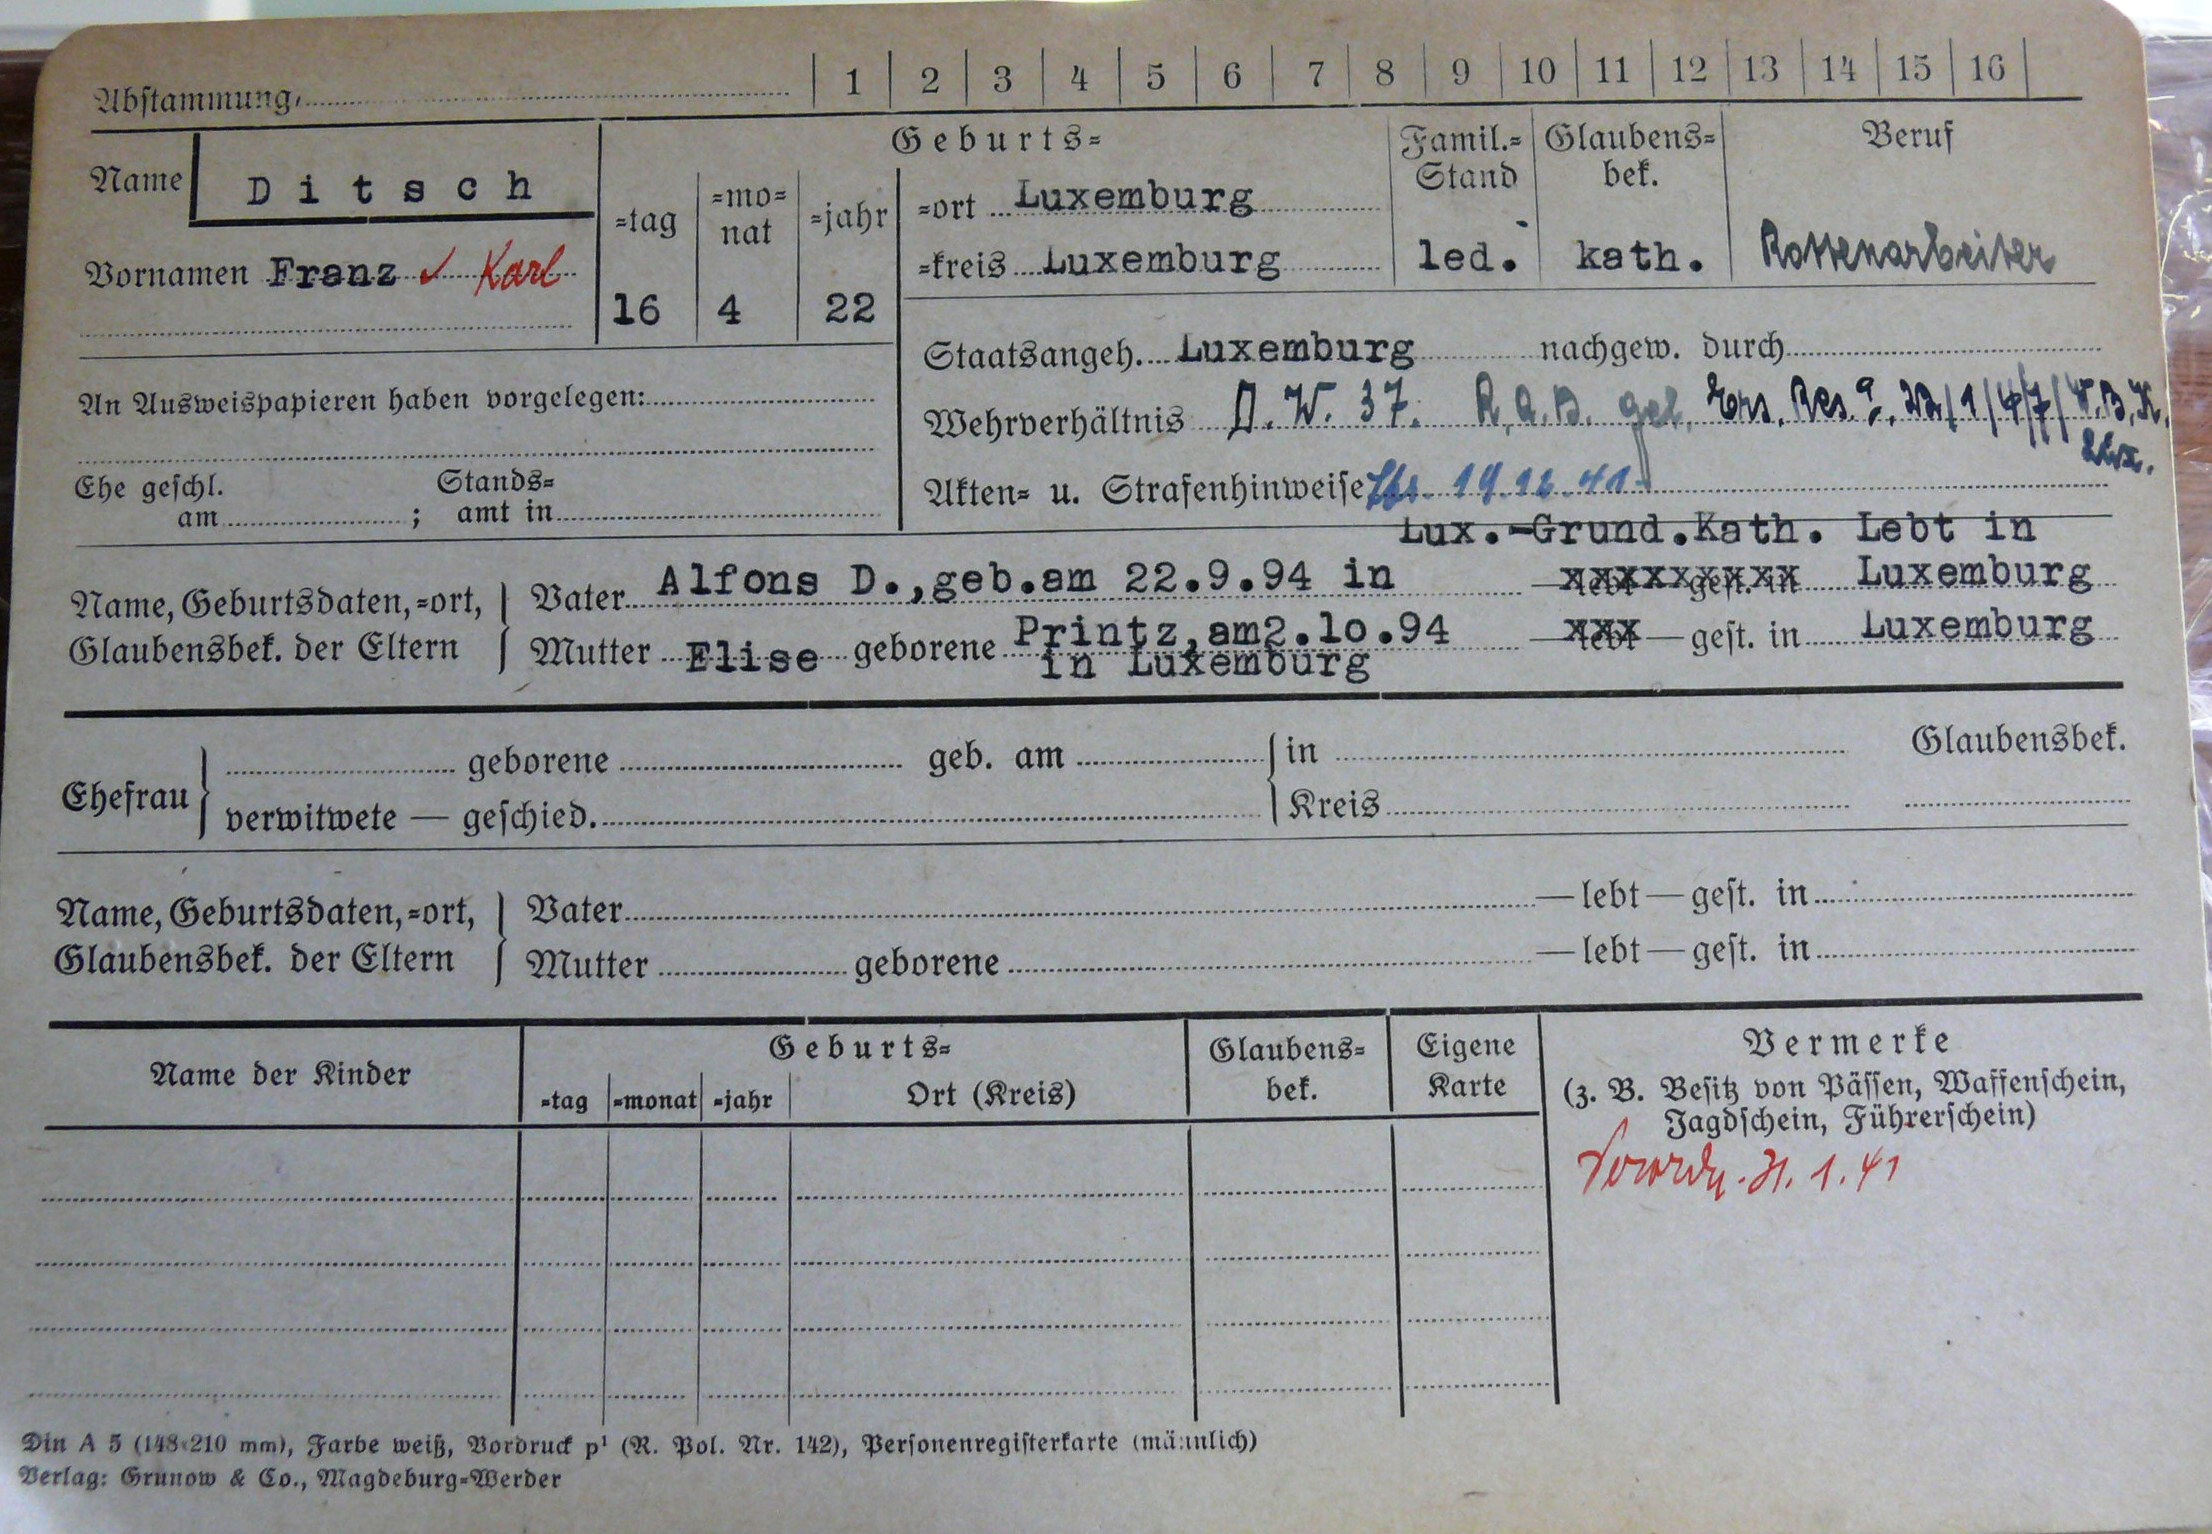 Abstammung, 1 2 3 4 5 6 7 8 9 10 11 12 13 14 15 16
Geburts= Famil.= Glaubens= Beruf
Stand bek.
Name D i t s c h
=tag =mo= =jahr =ort Luxemburg
nat
Vornamen Franz ✓ Karl
=kreis Luxemburg led. kath. Rottenarbeiter
16 4 22
Staatsangeh. Luxemburg nachgew. durch
An Ausweispapieren haben vorgelegen:
Wehrverhältnis D. W. 37. R.A.D. gel. Ers. Res. W.B.K.
Lux.
Ehe geschl. Stands=
am ; amt in
Akten= u. Strafenhinweise 19.12.41.
Lux.-Grund.Kath. Lebt in
Name, Geburtsdaten, =ort, Vater Alfons D.,geb.am 22.9.94 in — lebt — gest. in Luxemburg
Glaubensbek. der Eltern Mutter Elise geborene Printz,am2.lo.94 — lebt — gest. in Luxemburg
in Luxemburg
Ehefrau geborene geb. am in Glaubensbek.
verwitwete — geschied. Kreis
Name, Geburtsdaten, =ort, Vater — lebt — gest. in
Glaubensbek. der Eltern Mutter geborene — lebt — gest. in
Name der Kinder Geburts= Glaubens= Eigene Vermerke
=tag =monat =jahr Ort (Kreis) bek. Karte (z. B. Besitz von Pässen, Waffenschein,
Jagdschein, Führerschein)
31.1.41
Din A 5 (148×210 mm), Farbe weiß, Vordruck p¹ (R. Pol. Nr. 142), Personenregisterkarte (männlich)
Verlag: Grunow & Co., Magdeburg=Werder